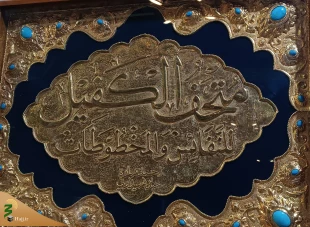 متحف الكفيل
للنفائس والمخطوطات